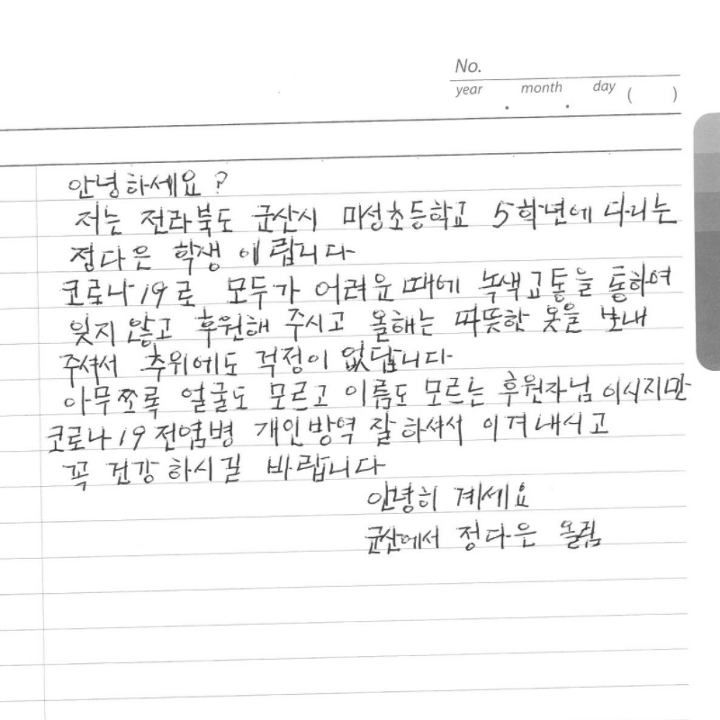 No.
year . month . day ( )
안녕하세요?
저는 전라북도 군산시 미성초등학교 5학년에 다니는
정다은 학생 이랍니다
코로나19로 모두가 어려운 때에 녹색교통을 통하여
잊지 않고 후원해 주시고 올해는 따뜻한 옷을 보내
주셔서 추위에도 걱정이 없답니다
아무쪼록 얼굴도 모르고 이름도 모르는 후원자님이시지만
코로나19 전염병 개인방역 잘하셔서 이겨내시고
꼭 건강하시길 바랍니다
안녕히 계세요
군산에서 정다은 올림